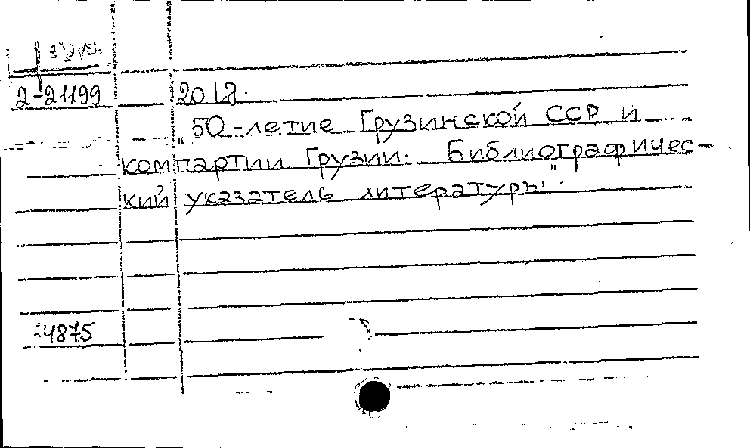 2-21199 2018.
"50-летие Грузинской ССР и
компартии Грузии: Библиографичес-
кий указатель литературы".
4875